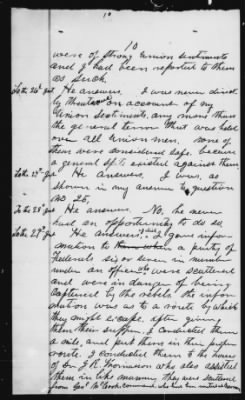 10
10
were of strong Union sentiments
and I had been reported to them
as such.
To the 26th Ques. He answers, I was never direct-
ly threatened on account of my
Union sentiments, any more than
the general terror that was held
over all Union men. None of
them were considered safe because
a general spt. existed against them
To the 27th Ques. He answers. I was, as
shown in my answer to question
No 25,
To the 28th Ques. He answers. No, he never
had an opportunity to do so,
To the 29th Ques. He answers, I gave infor-
mation to a party of
Federals six or seven in number
under an officer who were scattered
and were in danger of being
captured by the rebels. The infor-
mation was as to a route by which
they might escape, after giving
them their supper, I conducted them
a mile, and put them in their proper
route. I conducted them to the house
of Dr. J. R. Thomason who also assisted
them in like manner. They were scattered
from Genl McCook's command